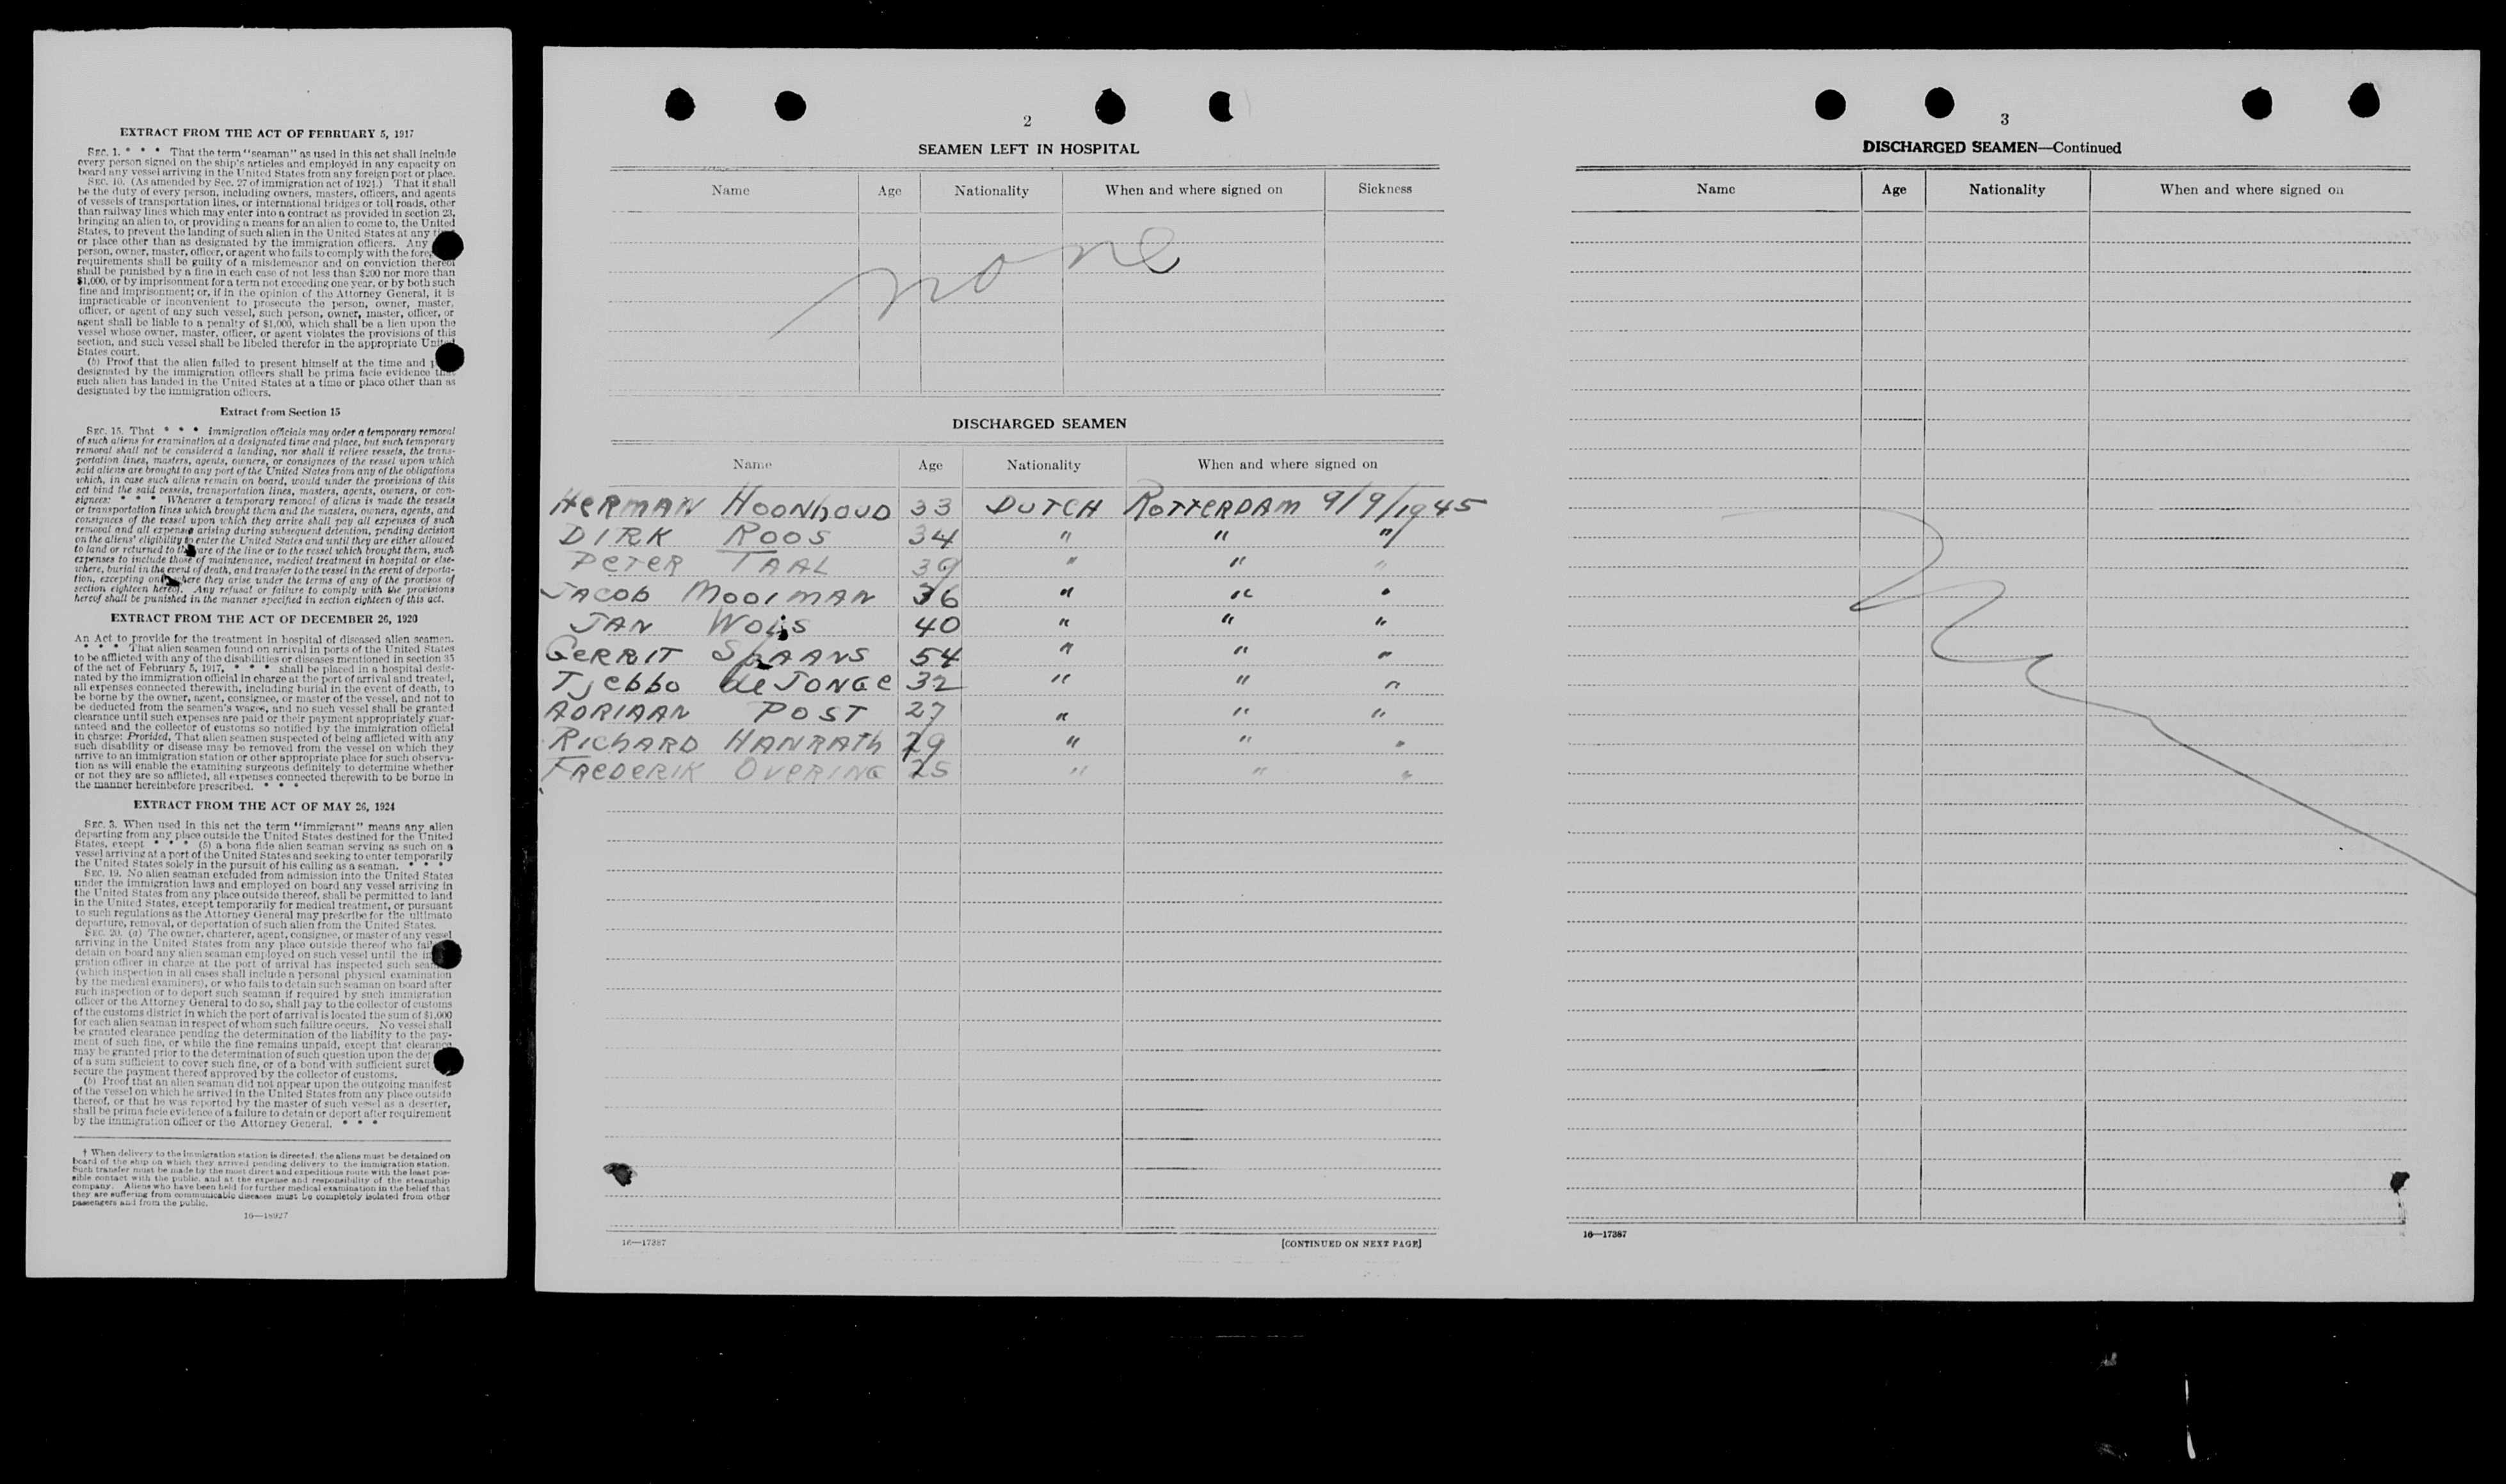 EXTRACT FROM THE ACT OF FEBRUARY 5, 1917
SEC. 1. * * * That the term "seaman" as used in this act shall include
every person signed on the ship's articles and employed in any capacity on
board any vessel arriving in the United States from any foreign port or place.
SEC. 10. (As amended by Sec. 27 of immigration act of 1924.) That it shall
be the duty of every person, including owners, masters, officers, and agents
of vessels of transportation lines, or international bridges or toll roads, other
than railway lines which may enter into a contract as provided in section 23,
bringing an alien to, or providing a means for an alien to come to, the United
States, to prevent the landing of such alien in the United States at any
or place other than as designated by the immigration officers. Any
person, owner, master, officer, or agent who fails to comply with the
requirements shall be guilty of a misdemeanor and on conviction thereof
shall be punished by a fine in each case of not less than $200 nor more than
$1,000, or by imprisonment for a term not exceeding one year, or by both such
fine and imprisonment; or, if in the opinion of the Attorney General, it is
impracticable or inconvenient to prosecute the person, owner, master,
officer, or agent of any such vessel, such person, owner, master, officer, or
agent shall be liable to a penalty of $1,000, which shall be a lien upon the
vessel whose owner, master, officer, or agent violates the provisions of this
section, and such vessel shall be libeled therefor in the appropriate United
States court.
(b) Proof that the alien failed to present himself at the time and
designated by the immigration officers shall be prima facie evidence that
such alien has landed in the United States at a time or place other than as
designated by the immigration officers.
Extract from Section 15
SEC. 15. That * * * immigration officials may order a temporary removal
of such aliens for examination at a designated time and place, but such temporary
removal shall not be considered a landing, nor shall it relieve vessels, the trans-
portation lines, masters, agents, owners, or consignees of the vessel upon which
said aliens are brought to any port of the United States from any of the obligations
which, in case such aliens remain on board, would under the provisions of this
act bind the said vessels, transportation lines, masters, agents, owners, or con-
signees: * * * Whenever a temporary removal of aliens is made the vessels
or transportation lines which brought them and the masters, owners, agents, and
consignees of the vessel upon which they arrive shall pay all expenses of such
removal and all expenses arising during subsequent detention, pending decision
on the aliens' eligibility to enter the United States and until they are either allowed
to land or returned to the care of the line or to the vessel which brought them, such
expenses to include those of maintenance, medical treatment in hospital or else-
where, burial in the event of death, and transfer to the vessel in the event of deporta-
tion, excepting only where they arise under the terms of any of the provisos of
section eighteen hereof. Any refusal or failure to comply with the provisions
hereof shall be punished in the manner specified in section eighteen of this act.
EXTRACT FROM THE ACT OF DECEMBER 26, 1920
An Act to provide for the treatment in hospital of diseased alien seamen.
* * * That alien seamen found on arrival in ports of the United States
to be afflicted with any of the disabilities or diseases mentioned in section 35
of the act of February 5, 1917, * * * shall be placed in a hospital desig-
nated by the immigration official in charge at the port of arrival and treated,
all expenses connected therewith, including burial in the event of death, to
be borne by the owner, agent, consignee, or master of the vessel, and not to
be deducted from the seamen's wages, and no such vessel shall be granted
clearance until such expenses are paid or their payment appropriately guar-
anteed and the collector of customs so notified by the immigration official
in charge: Provided, That alien seamen suspected of being afflicted with any
such disability or disease may be removed from the vessel on which they
arrive to an immigration station or other appropriate place for such observa-
tion as will enable the examining surgeons definitely to determine whether
or not they are so afflicted, all expenses connected therewith to be borne in
the manner hereinbefore prescribed. * * *
EXTRACT FROM THE ACT OF MAY 26, 1924
SEC. 3. When used in this act the term "immigrant" means any alien
departing from any place outside the United States destined for the United
States, except * * * (5) a bona fide alien seaman serving as such on a
vessel arriving at a port of the United States and seeking to enter temporarily
the United States solely in the pursuit of his calling as a seaman. * * *
SEC. 19. No alien seaman excluded from admission into the United States
under the immigration laws and employed on board any vessel arriving in
the United States from any place outside thereof, shall be permitted to land
in the United States, except temporarily for medical treatment, or pursuant
to such regulations as the Attorney General may prescribe for the ultimate
departure, removal, or deportation of such alien from the United States.
SEC. 20. (a) The owner, charterer, agent, consignee, or master of any vessel
arriving in the United States from any place outside thereof who fails
detain on board any alien seaman employed on such vessel until the
gration officer in charge at the port of arrival has inspected such
(which inspection in all cases shall include a personal physical examination
by the medical examiners), or who fails to detain such seaman on board after
such inspection or to deport such seaman if required by such immigration
officer or the Attorney General to do so, shall pay to the collector of customs
of the customs district in which the port of arrival is located the sum of $1,000
for each alien seaman in respect of whom such failure occurs. No vessel shall
be granted clearance pending the determination of the liability to the pay-
ment of such fine, or while the fine remains unpaid, except that clearance
may be granted prior to the determination of such question upon the
of a sum sufficient to cover such fine, or of a bond with sufficient
secure the payment thereof approved by the collector of customs.
(b) Proof that an alien seaman did not appear upon the outgoing manifest
of the vessel on which he arrived in the United States from any place outside
thereof, or that he was reported by the master of such vessel as a deserter,
shall be prima facie evidence of a failure to detain or deport after requirement
by the immigration officer or the Attorney General. * * *
† When delivery to the immigration station is directed, the aliens must be detained on
board of the ship on which they arrived pending delivery to the immigration station.
Such transfer must be made by the most direct and expeditious route with the least pos-
sible contact with the public, and at the expense and responsibility of the steamship
company. Aliens who have been held for further medical examination in the belief that
they are suffering from communicable diseases must be completely isolated from other
passengers and from the public.
16—18927
2
SEAMEN LEFT IN HOSPITAL
Name Age Nationality When and where signed on Sickness
none
DISCHARGED SEAMEN
Name Age Nationality When and where signed on
HERMAN HOONHOUD 33 DUTCH ROTTERDAM 9/9/1945
DIRK ROOS 34 " " "
PETER TAAL 39 " " "
JACOB MOOIMAN 36 " " "
JAN 40 " " "
GERRIT SPAANS 54 " " "
TJEBBO de JONGE 32 " " "
ADRIAAN POST 27 " " "
RICHARD HANRATH 29 " " "
FREDERIK OVERING 25 " " "
16—17387
[CONTINUED ON NEXT PAGE]
3
DISCHARGED SEAMEN—Continued
Name Age Nationality When and where signed on
16—17387